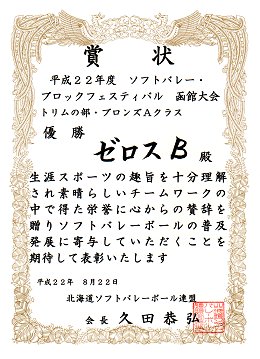 賞状
平成22年度 ソフトバレー・
ブロックフェスティバル 函館大会
トリムの部・ブロンズAクラス
優勝
ゼロスB 殿
生涯スポーツの趣旨を十分理解
され素晴らしいチームワークの
中で得た栄誉に心からの賛辞を
贈りソフトバレーボールの普及
発展に寄与していただくことを
期待して表彰いたします
平成22年 8月22日
北海道ソフトバレーボール連盟
会長 久田恭弘